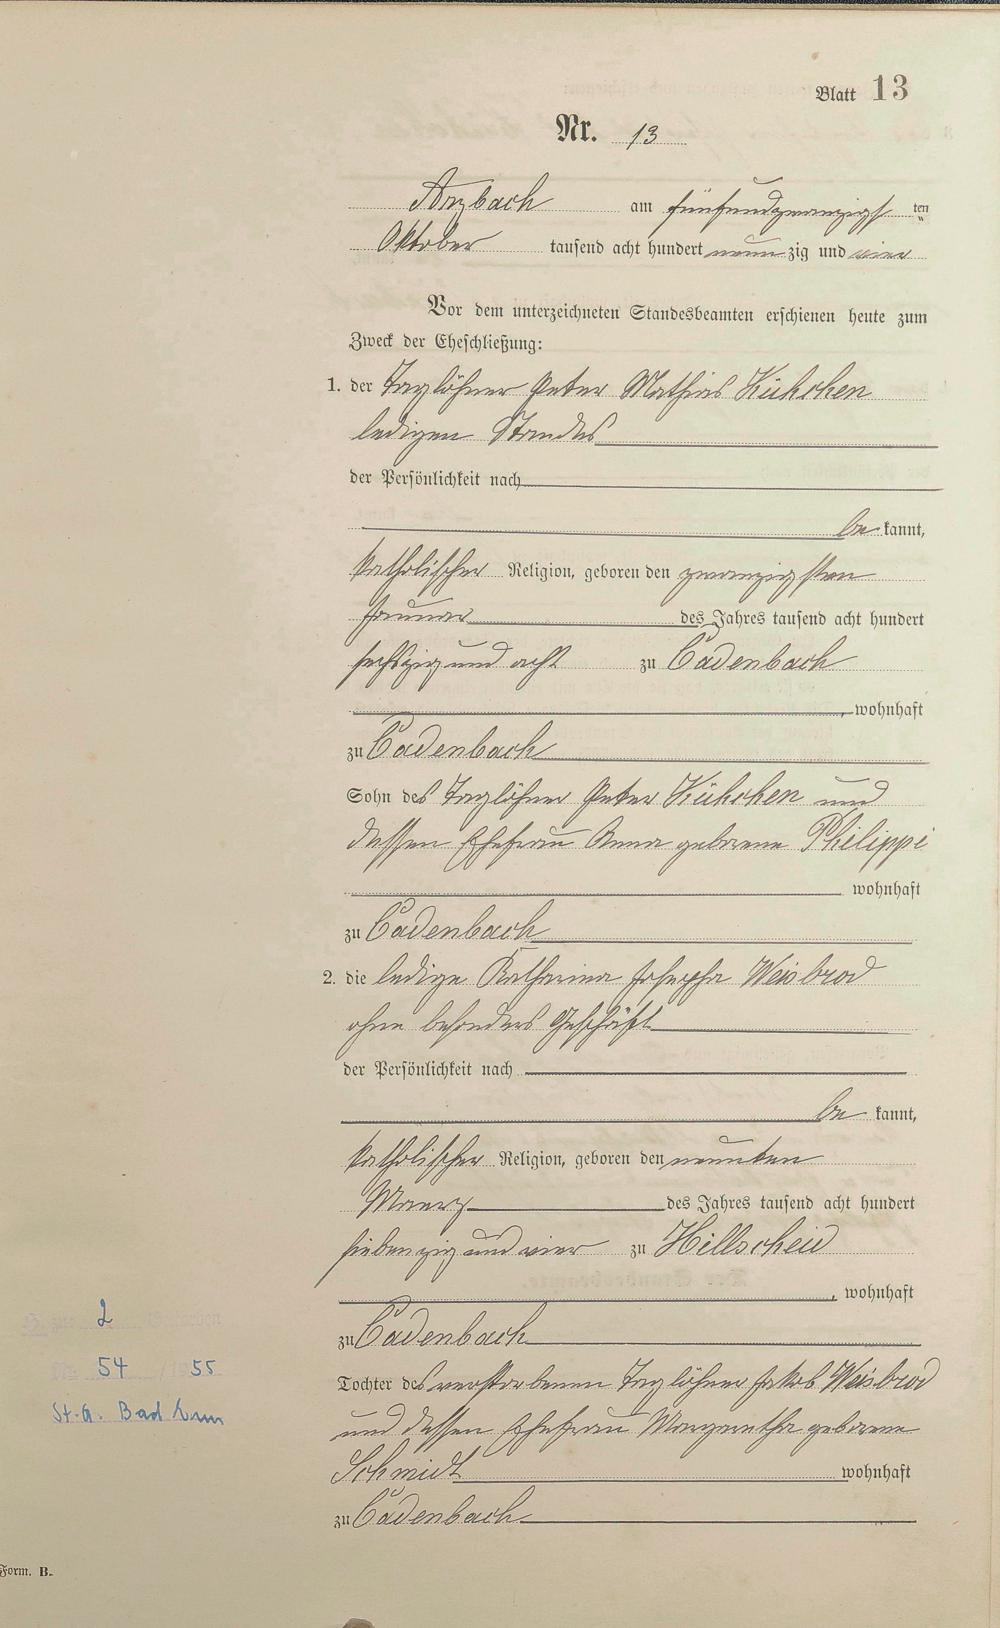 Blatt 13
Nr. 13
Arzbach am fünfundzwanzigsten
Oktober tausend acht hundert neunzig und vier
Vor dem unterzeichneten Standesbeamten erschienen heute zum
Zweck der Eheschließung:
1. der Taglöhner Peter Mathias Kühchen
ledigen Standes
der Persönlichkeit nach
be kannt,
katholischer Religion, geboren den zwanzigsten
Januar des Jahres tausend acht hundert
sechszig und acht zu Cadenbach
, wohnhaft
zu Cadenbach
Sohn des Taglöhner Peter Kühchen und
dessen Ehefrau Anna geborene Philippi
wohnhaft
zu Cadenbach
2. die ledige Katharina Josepha Weisbrod
ohne besonders Geschäft
der Persönlichkeit nach
be kannt,
katholischer Religion, geboren den neunten
Maerz des Jahres tausend acht hundert
siebenzig und vier zu Hillscheid
, wohnhaft
zu Cadenbach
Tochter des verstorbenen Taglöhner Jakob Weisbrod
und dessen Ehefrau Margaretha geborene
Schmidt wohnhaft
zu Cadenbach
2
Nr. 54 / 55
St. A. Bad Ems
Form. B.